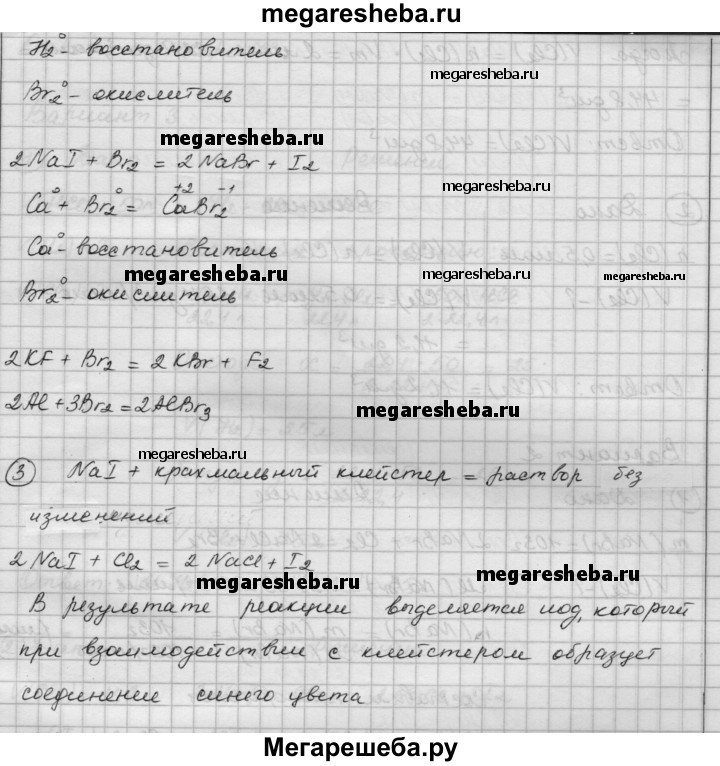 megaresheba.ru
H₂⁰ - восстановитель
megaresheba.ru
Br₂⁰ - окислитель
megaresheba.ru
2NaI + Br₂ = 2NaBr + I₂
megaresheba.ru
Ca⁰ + Br₂⁰ = Ca⁺²Br₂⁻¹
Ca⁰ - восстановитель
megaresheba.ru megaresheba.ru megaresheba.ru
Br₂⁰ - окислитель
2KF + Br₂ = 2KBr + F₂
2Al + 3Br₂ = 2AlBr₃
megaresheba.ru
megaresheba.ru
③ NaI + крахмальный клейстер = раствор без
изменений
2NaI + Cl₂ = 2NaCl + I₂
megaresheba.ru megaresheba.ru
В результате реакции выделяется иод, который
при взаимодействии с клейстером образует
соединение синего цвета
Мегарешеба.ру